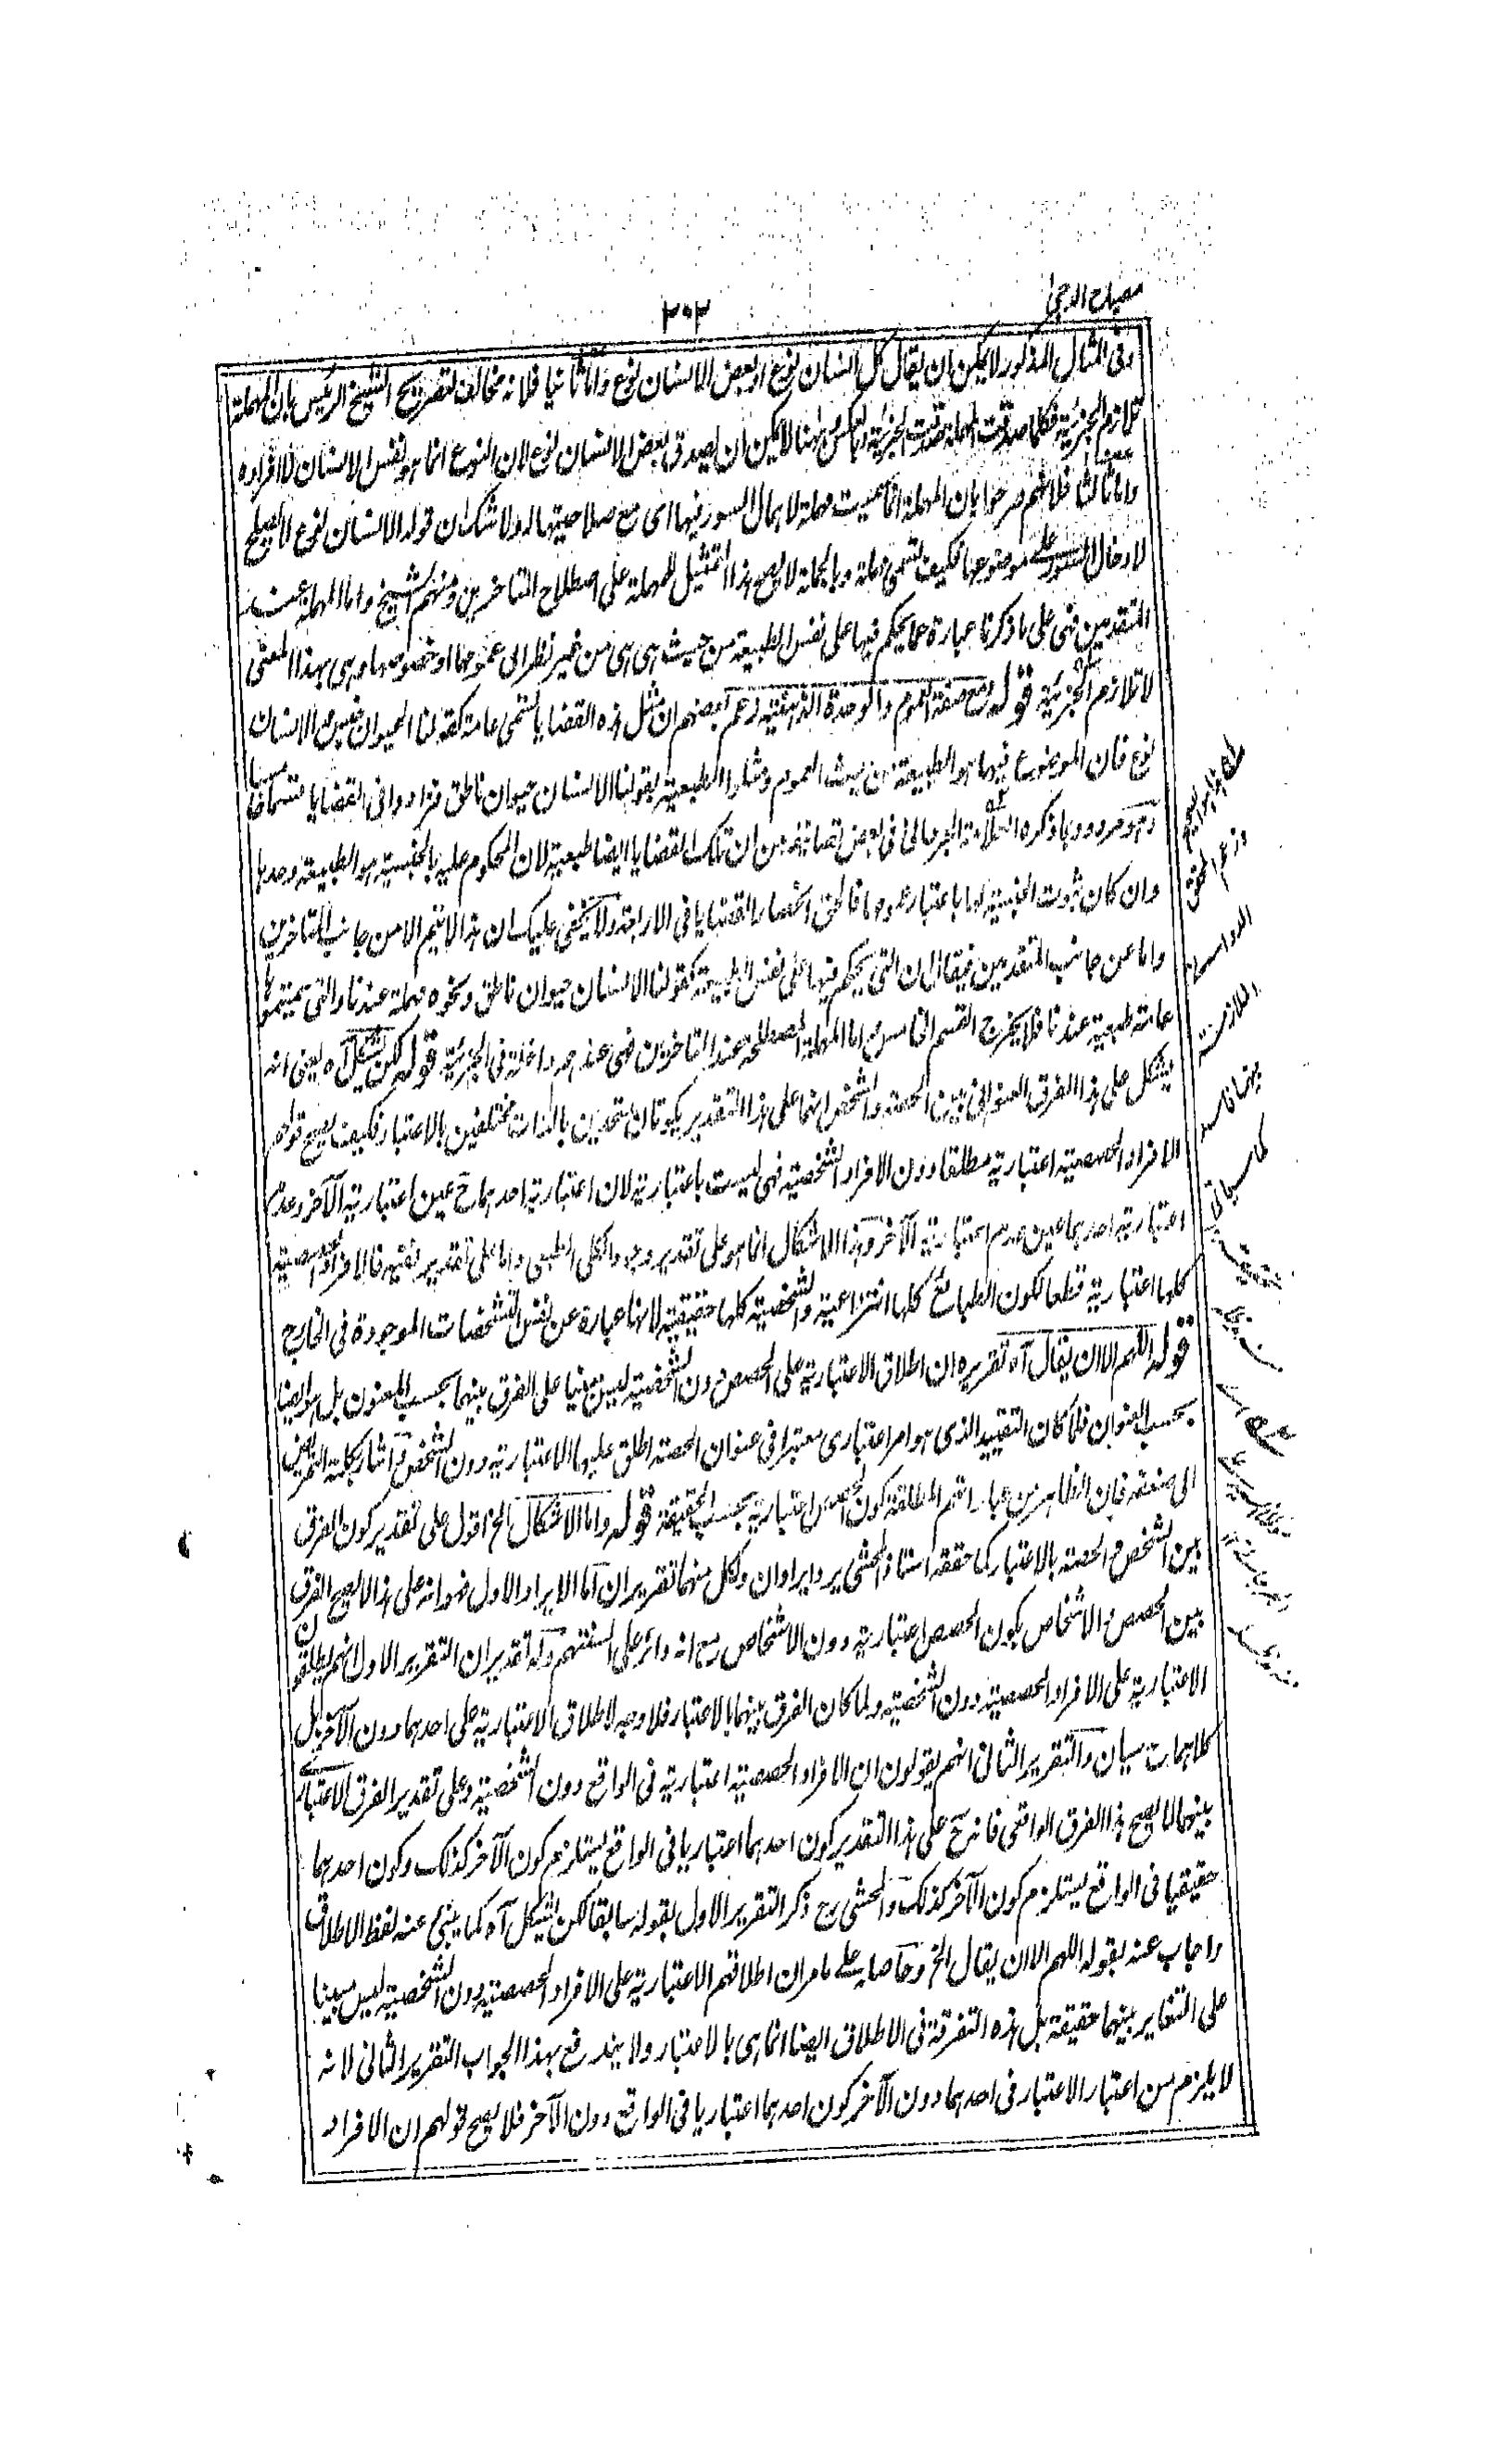 مصباح الدجى
٢٠٢
وفى المثال المذكور لا يمكن ان يقال كل انسان نوع او بعض الانسان نوع واما ثانيا فلانه مخالف لتصريح الشيخ الرئيس بان المهملة
تلازم الجزئية فكلما صدقت المهملة صدقت الجزئية وبالعكس وههنا لا يمكن ان يصدق بعض الانسان نوع لان النوع انما هو نفس الانسان لا افراده
واما ثالثا فلانهم صرحوا بان المهملة انما سميت مهملة لاهمال السور فيها اى مع صلاحيتها له ولا شك ان قولنا الانسان نوع لا يصلح
لادخال السور على موضوعها فكيف تسمى مهملة وبالجملة لا يصح هذا التمثيل للمهملة على اصطلاح المتاخرين ومنهم الشيخ واما المهملة عند
المتقدمين فهى على ما ذكرنا عبارة عما يحكم فيها على نفس الطبيعة من حيث هى هى من غير نظر الى عمومها او خصوصها وهى بهذا المعنى
لا تلازم الجزئية قوله ومع صفة العموم والوحدة الذهنية زعم بعضهم ان مثل هذه القضايا تسمى عامة كقولنا الحيوان جنس والانسان
نوع فان الموضوع فيها هو الطبيعة من حيث العموم ومثلوا الطبعية بقولنا الانسان حيوان ناطق فزادوا فى القضايا قسما خامسا
وهو مردود بما ذكره العلامة الجرجانى فى بعض تصانيفه من ان تلك القضايا ايضا طبعية لان المحكوم عليه بالجنسية هو الطبيعة وحدها
وان كان ثبوت الجنسية لها باعتبار عمومها فالحق انحصار القضايا فى الاربعة ولا يخفى عليك ان هذا لا يتم الا من جانب المتاخرين
واما من جانب المتقدمين فيقال ان التى يحكم فيها على نفس الطبيعة كقولنا الانسان حيوان ناطق ونحوه مهملة عندنا والتى سميتموها
عامة طبعية عندنا فلا يخرج القسم الخامس واما المهملة المصطلحة عند المتاخرين فهى عندهم داخلة فى الجزئية قوله لكن يشكل آه يعنى انه
يشكل على هذا الفرق العنوانى بين الحصة والشخص انهما على هذا التقدير يكونان متحدين بالذات مختلفين بالاعتبار فكيف يصح قولهم
الافراد الحصصية اعتبارية مطلقا دون الافراد الشخصية فهى ليست باعتبارية لان اعتبارية احدهما ح عين اعتبارية الآخر وعدم
اعتبارية احدهما عين عدم اعتبارية الآخر وهذا الاشكال انما هو على تقدير وجود الكلى الطبعى واما على تقدير نفيه فالافراد الحصصية
كلها اعتبارية قطعا لكون الطبائع كلها انتزاعية والشخصية كلها حقيقية لانها عبارة عن نفس التشخصات الموجودة فى الخارج
قوله اللهم الا ان يقال آه تقريره ان اطلاق الاعتبارية على الحصص دون الشخصية ليس مبنيا على الفرق بينهما بحسب المعنون بل هو ايضا
بحسب العنوان فلما كان التقييد الذى هو امر اعتبارى معتبرا فى عنوان الحصة اطلق عليها الاعتبارية دون الشخص واشار بكلمة التمريض
الى ضعفه فان الظاهر من عباراتهم المطلقة كون الحصص اعتبارية بحسب الحقيقة قوله واما الاشكال الخ اقول على تقدير كون الفرق
بين الشخص والحصة بالاعتبار كما حققه استاذ المحشى يرد ايرادان ولكل منهما تقريران اما الايراد الاول فهو انه على هذا لا يصح الفرق
بين الحصص والاشخاص بكون الحصص اعتبارية دون الاشخاص مع انه دائر على السنتهم وله تقديران التقرير الاول انهم يطلقون
الاعتبارية على الافراد الحصصية دون الشخصية ولما كان الفرق بينهما بالاعتبار فلا وجه لاطلاق الاعتبارية على احدهما دون الآخر بل
كلاهما سيان والتقرير الثانى انهم يقولون ان الافراد الحصصية اعتبارية فى الواقع دون الشخصية وعلى تقدير الفرق الاعتبارى
بينهما لا يصح هذا الفرق الواقعى فانه ح على هذا التقدير كون احدهما اعتباريا فى الواقع يستلزم كون الآخر كذلك وكون احدهما
حقيقيا فى الواقع يستلزم كون الآخر كذلك والمحشى رح ذكر التقرير الاول بقوله سابقا لكن يشكل آه كما ينبئ عنه لفظ الاطلاق
واجاب عنه بقوله اللهم الا ان يقال الخ وحاصله على ما مر ان اطلاقهم الاعتبارية على الافراد الحصصية دون الشخصية ليس مبنيا
على التغاير بينهما حقيقة بل هذه التفرقة فى الاطلاق ايضا انما هى بالاعتبار ولا يندفع بهذا الجواب التقرير الثانى لانه
لا يلزم من اعتبار الاعتبار فى احدهما دون الآخر كون احدهما اعتباريا فى الواقع دون الآخر فلا يصح قولهم ان الافراد
وزعم المحقق
الدوانى
الملازمة
بينهما فاسد
كما سياتى